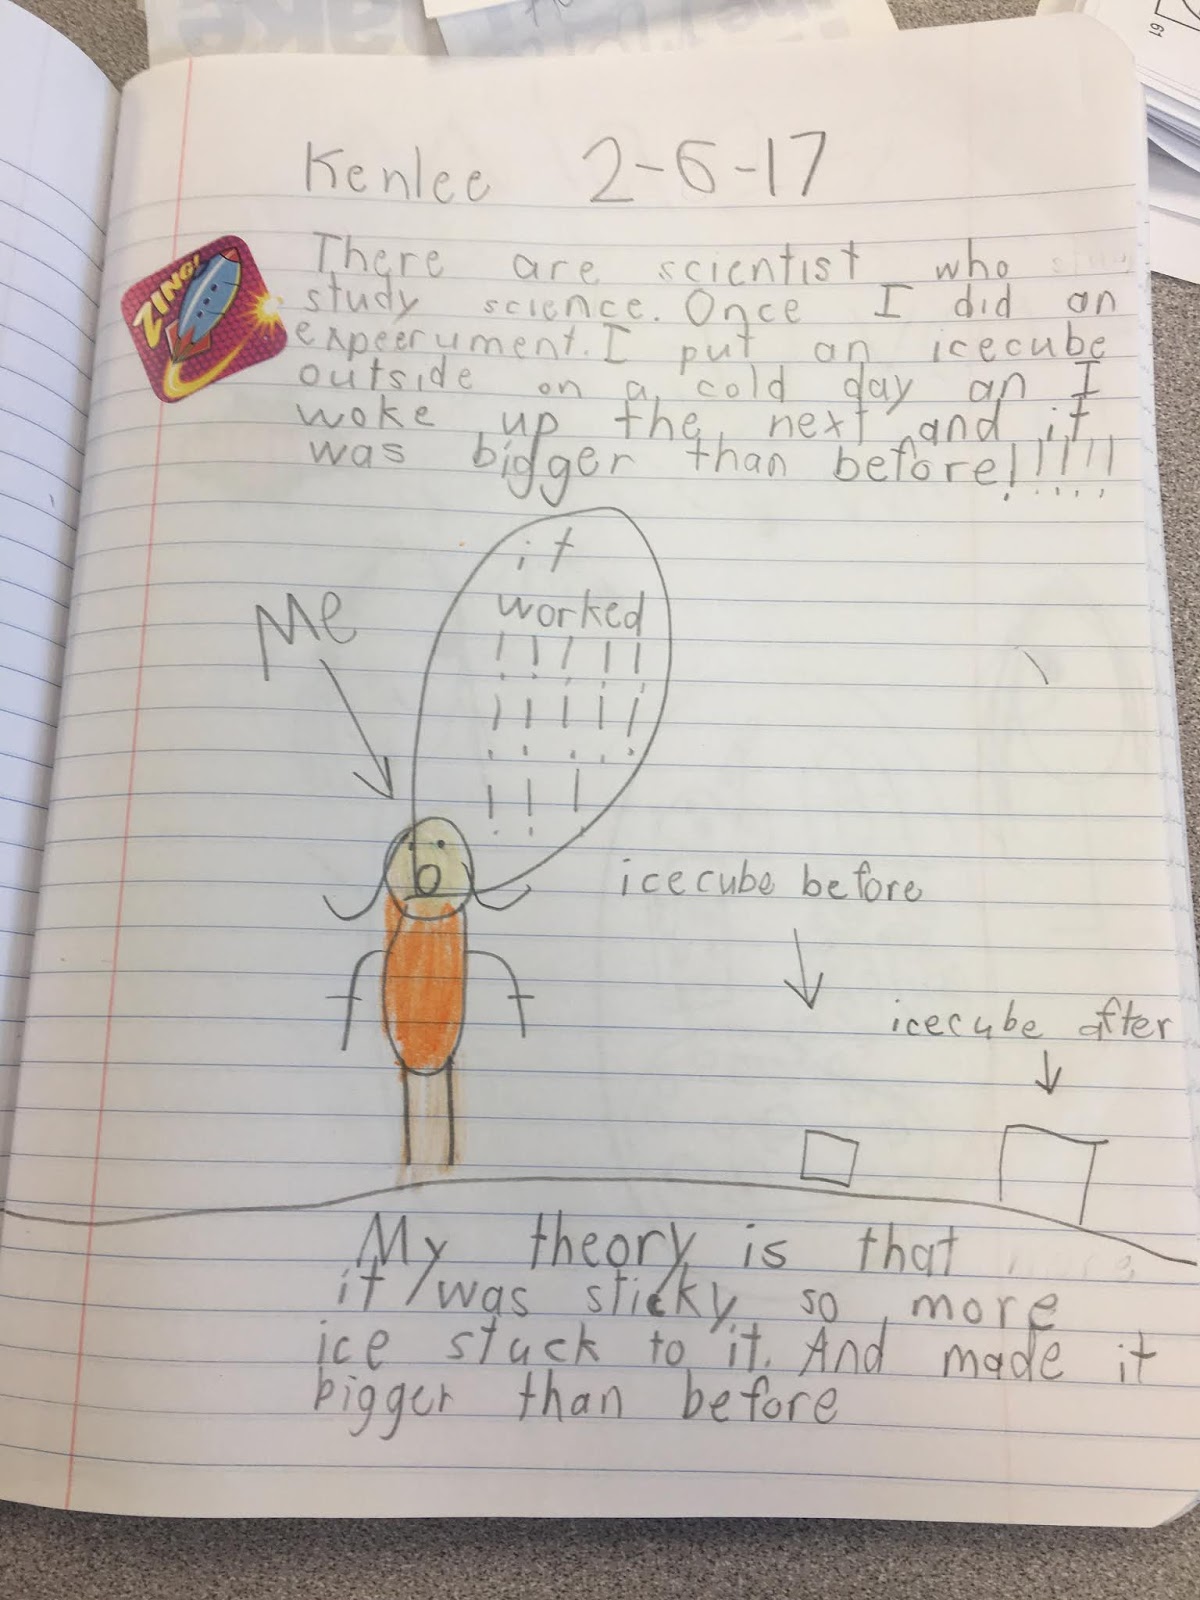 Kenlee 2-6-17
There are scientist who
study science. Once I did an
expeerument. I put an icecube
outside on a cold day an I
woke up the next and it
was bigger than before!!!!!!
ZING!
it
worked
! ! ! ! !
! ! ! ! !
! ! !
Me
icecube before
icecube after
My theory is that
it was sticky so more
ice stuck to it. And made it
bigger than before
61